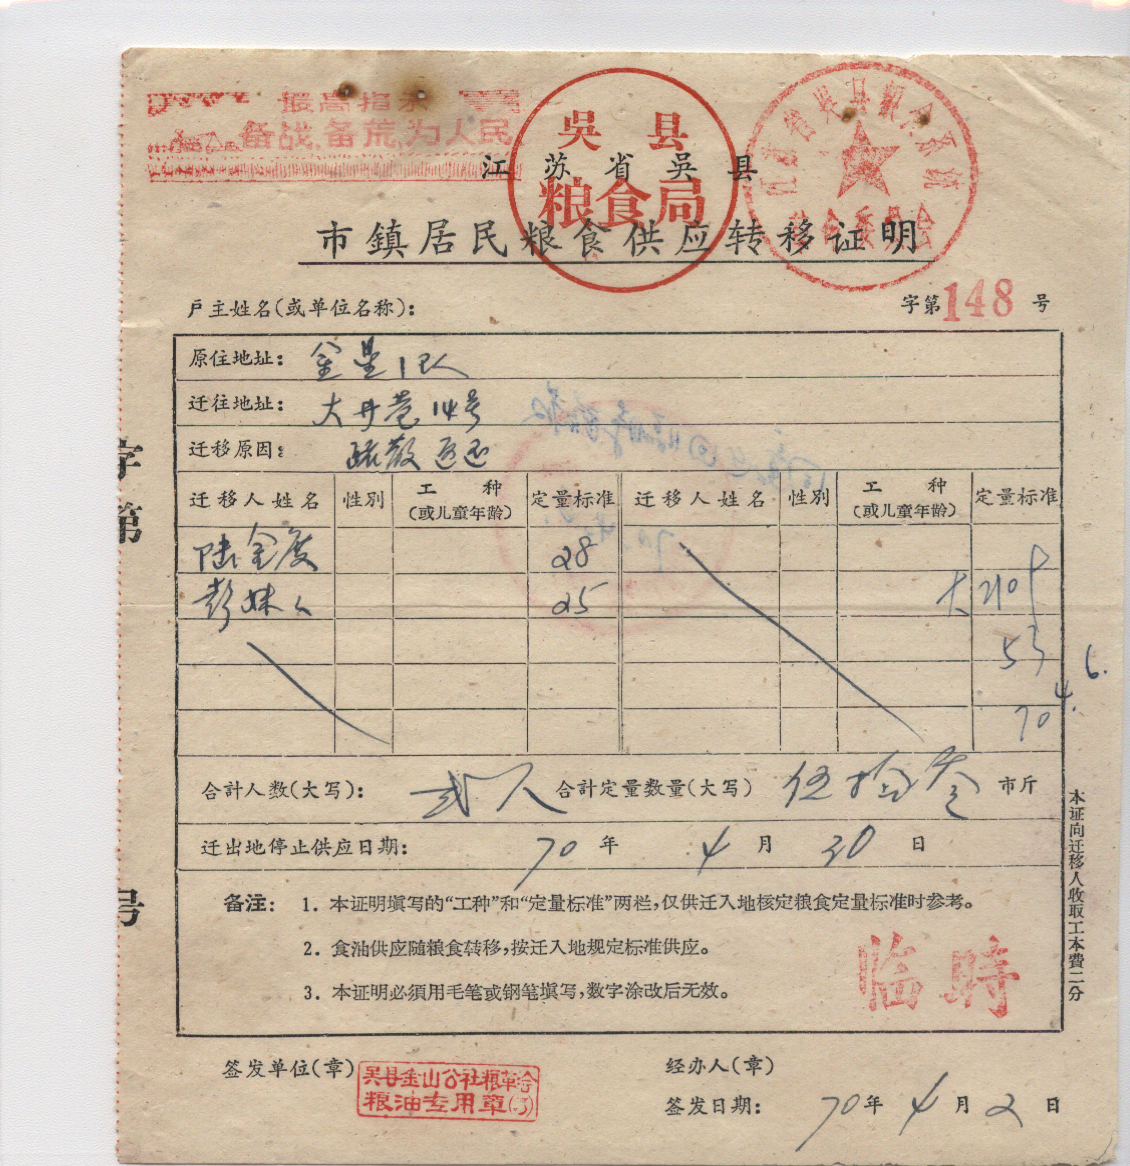 最高指示
备战、备荒、为人民
吳县
粮食局
江苏省吳县
市鎮居民粮食供应转移证明
戶主姓名(或单位名称):
字第148号
原住地址: 金星1队
迁往地址: 大井巷14号
迁移原因: 疏散返还
迁移人姓名 性别 工种(或儿童年龄) 定量标准 迁移人姓名 性别 工种(或儿童年龄) 定量标准
陆金度 28
彭妹 25
53
70
4.
6.
合計人数(大写): 弍人 合計定量数量(大写) 伍拾叁 市斤
迁出地停止供应日期: 70年4月30日
备注: 1. 本证明填写的“工种”和“定量标准”两栏,仅供迁入地核定粮食定量标准时参考。
2. 食油供应随粮食转移,按迁入地规定标准供应。
3. 本证明必須用毛笔或钢笔填写,数字涂改后无效。
临時
本证向迁移人收取工本費二分
字第
号
签发单位(章)
吴县金山公社粮革会
粮油专用章(3)
经办人(章)
签发日期: 70年4月2日